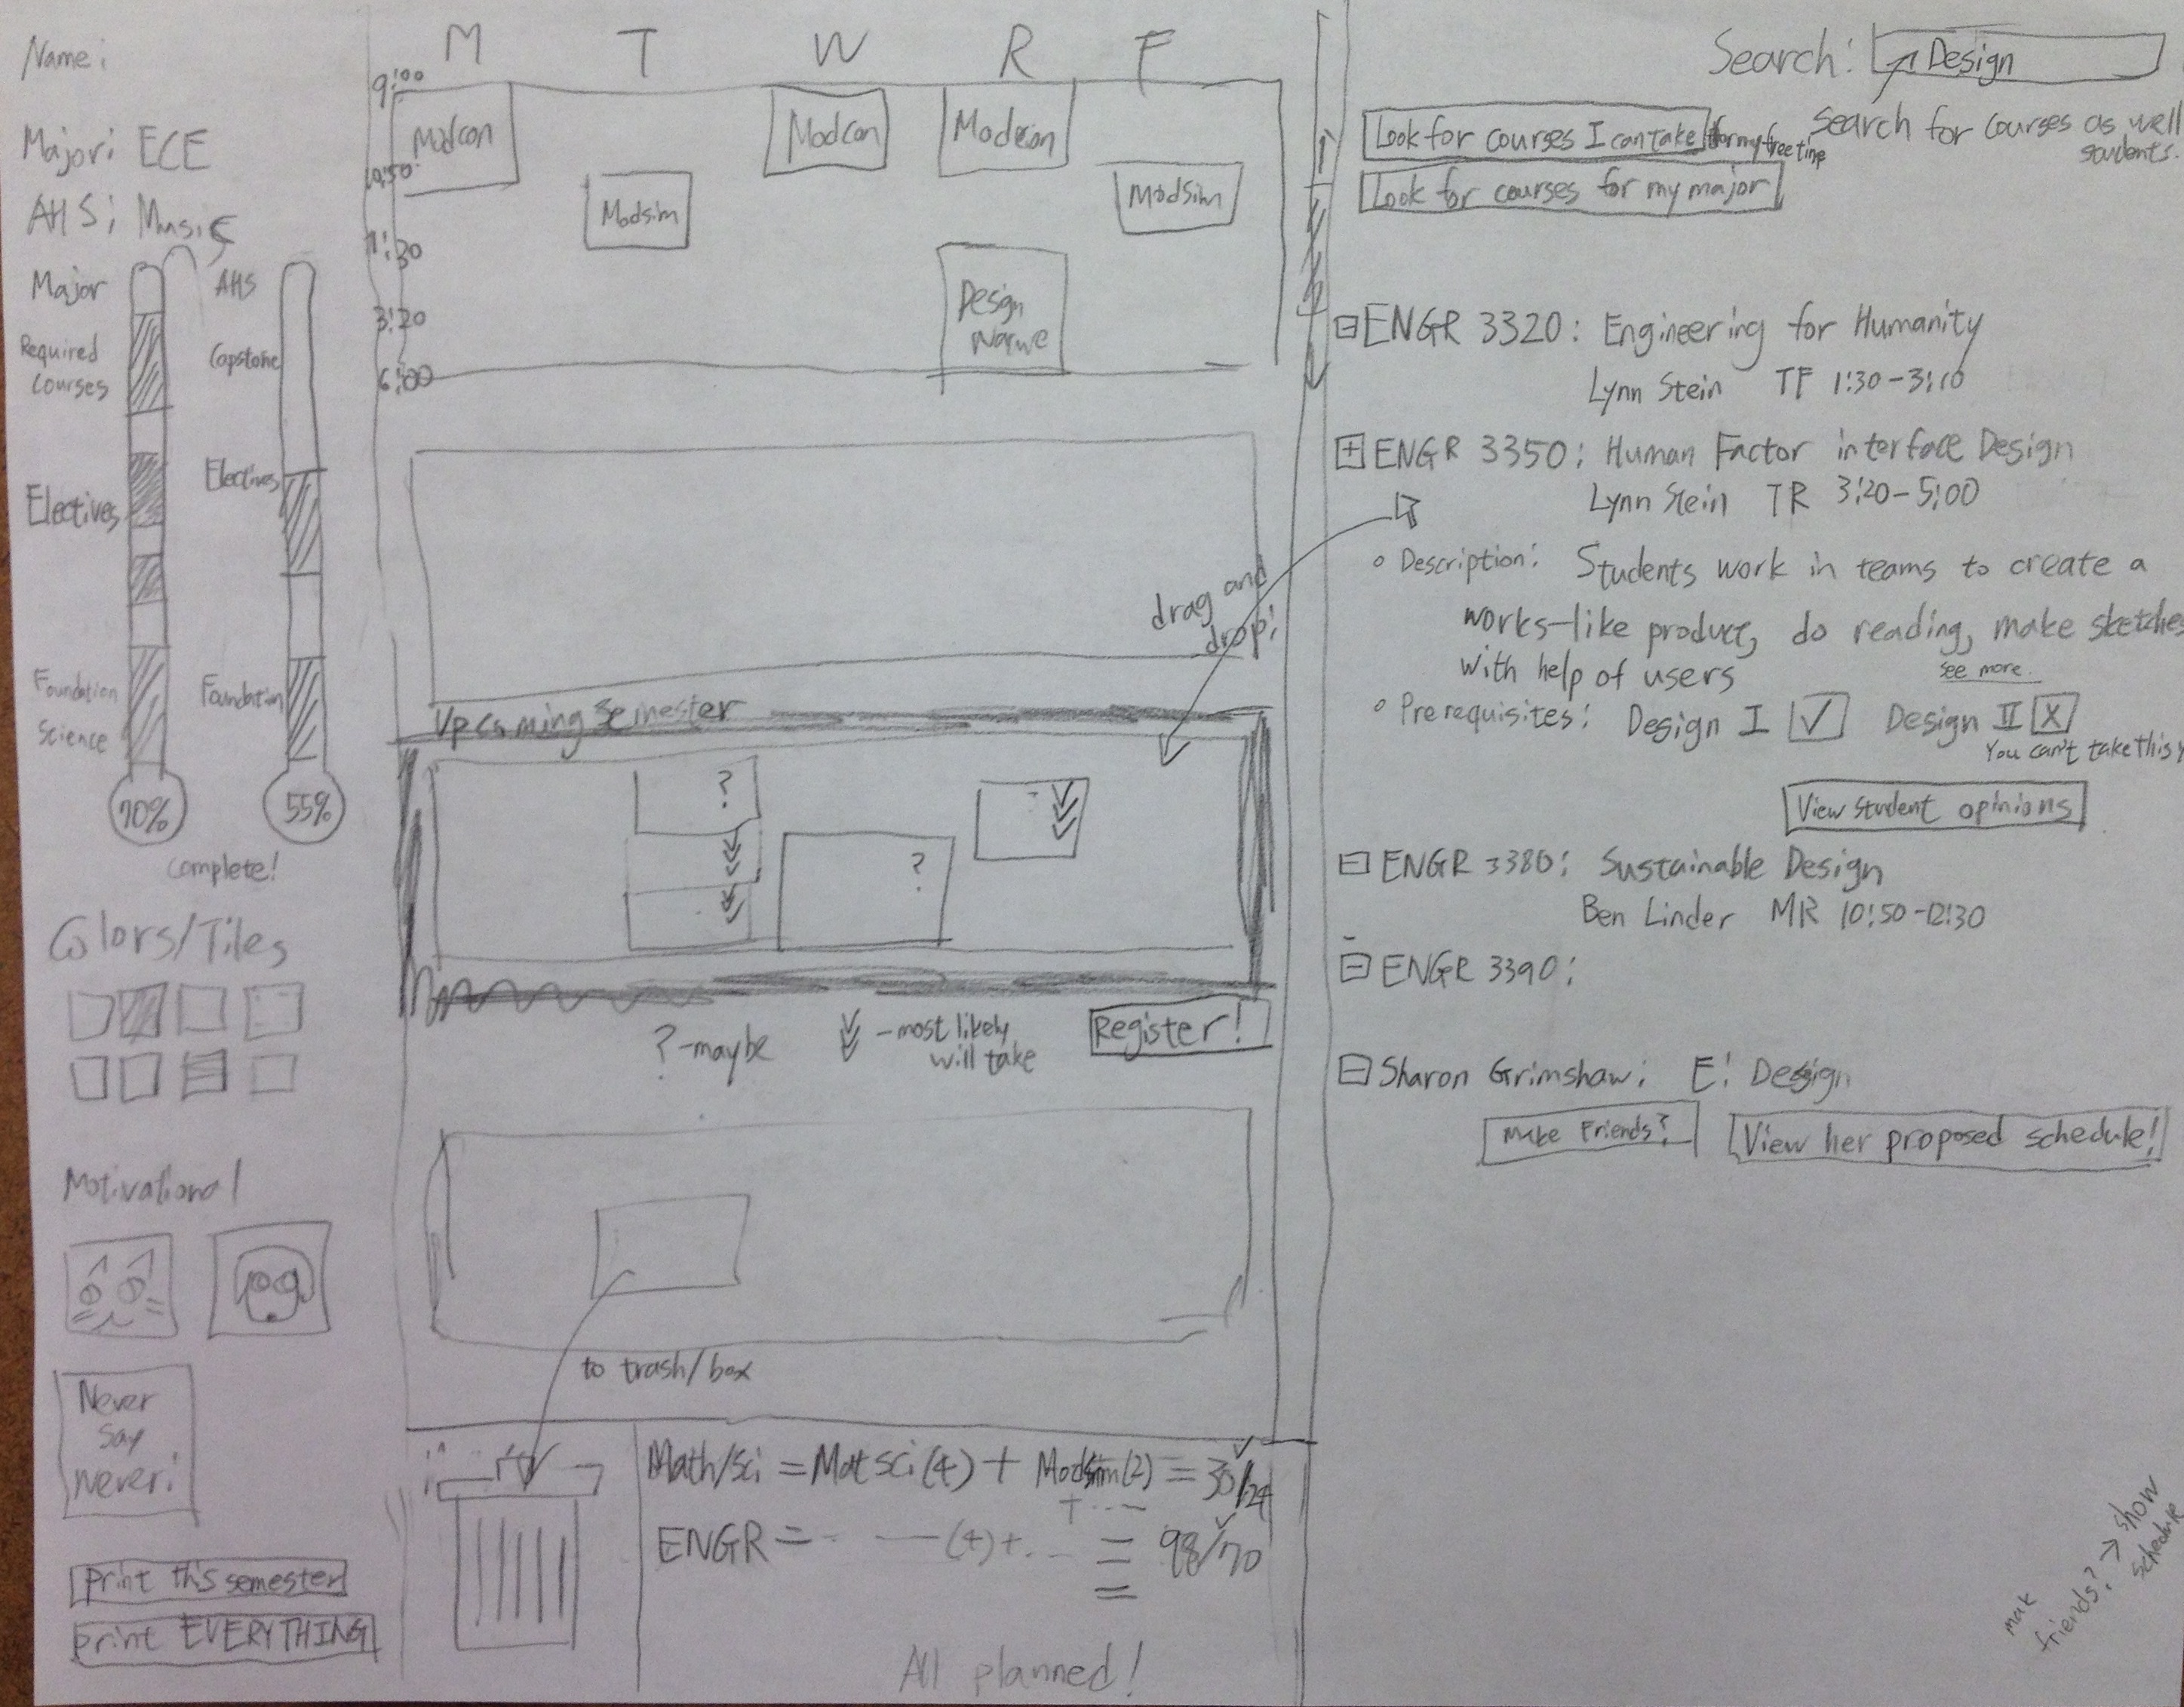 Name:
Major: ECE
AHS: Music
Major
AHS
Required
Courses
Capstone
Electives
Electives
Foundation
Science
Foundation
70%
55%
Complete!
Colors/Tiles
Motivational
Never
Say
Never!
Print this semester
Print EVERYTHING
M T W R F
9:00
10:50
1:30
3:20
6:00
Modcon
Modcon
Modcon
Modsim
Modsim
Design
Nature
drag and
drop!
Upcoming Semester
?
?
? -maybe
-most likely
will take
Register!
to trash/box
Math/Sci = Matsci(4) + Modsim(2) = 30/24
+ ...
ENGR = - — (4) + .. = 98/70
All planned!
Search: Design
Search for courses as well
students.
Look for courses I can take for my free time
Look for courses for my major
ENGR 3320: Engineering for Humanity
Lynn Stein TF 1:30-3:10
ENGR 3350: Human Factor interface Design
Lynn Stein TR 3:20-5:00
Description: Students work in teams to create a
works-like product, do reading, make sketches
with help of users
see more.
Prerequisites: Design I ✓ Design II X
You can't take this
View student opinions
ENGR 3380: Sustainable Design
Ben Linder MR 10:50-12:30
ENGR 3390:
Sharon Grimshaw: E: Design
Make Friends?
View her proposed schedule!
mak
friends? → show
schedule